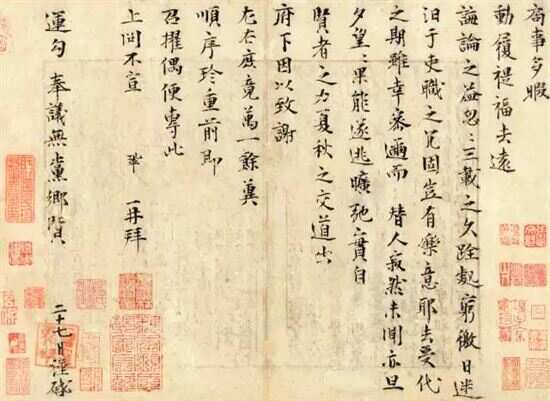 局事多暇
動履禔福去遠
誨論之益忽〻三載之久跧處窮徼日迷
汩于吏職之冗固豈有樂意耶去受代
之期雖幸密邇而替人寂然未聞亦旦
夕望〻果能遂逃曠弛實自
賢者之力夏秋之交道出
府下因以致謝
左右庶竟萬一餘冀
順序珍重前即
召擢偶便專此
上問不宣 鞏再拜
運勾奉議無黨鄉賢
二十七日謹啓